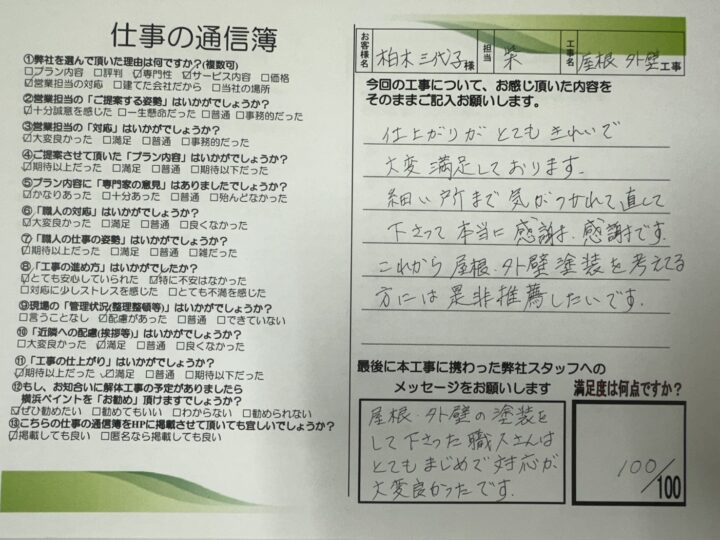 仕事の通信簿
①弊社を選んで頂いた理由は何ですか?(複数可)
□プラン内容 □評判 ☑専門性 ☑サービス内容 □価格
☑営業担当の対応 □建てた会社だから □当社の場所
②営業担当の「ご提案する姿勢」はいかがでしょうか?
☑十分誠意を感じた □一生懸命だった □普通 □事務的だった
③営業担当の「対応」はいかがでしょうか?
☑大変良かった □満足 □普通 □事務的だった
④ご提案させて頂いた「プラン内容」はいかがでしょうか?
☑期待以上だった □満足 □普通 □期待以下だった
⑤プラン内容に「専門家の意見」はありましたでしょうか?
☑かなりあった □十分あった □普通 □殆んどなかった
⑥「職人の対応」はいかがでしょうか?
☑大変良かった □満足 □普通 □良くなかった
⑦「職人の仕事の姿勢」はいかがでしょうか?
☑期待以上だった □満足 □普通 □雑だった
⑧「工事の進め方」はいかがでしたか?
☑とても安心していられた ☑特に不安はなかった
□対応に少しストレスを感じた □とても不満を感じた
⑨現場の「管理状況(整理整頓等)」はいかがでしょうか?
□言うことなし ☑配慮があった □普通 □できていない
⑩「近隣への配慮(挨拶等)」はいかがでしょうか?
□大変良かった ☑満足 □普通 □良くなかった
⑪「工事の仕上がり」はいかがでしょうか?
☑期待以上だった ☑満足 □普通 □期待以下だった
⑫もし、お知合いに解体工事の予定がありましたら
横浜ペイントを「お勧め」頂けますでしょうか?
☑ぜひ勧めたい □勧めてもいい □わからない □勧められない
⑬こちらの仕事の通信簿をHPに掲載させて頂いても宜しいでしょうか?
☑掲載しても良い □匿名なら掲載しても良い
お客様名 柏木 三代子様 担当 柴 工事名 屋根 外壁工事
今回の工事について、お感じ頂いた内容を
そのままご記入お願いします。
仕上がりが とても きれいで
大変 満足しております。
細い所まで 気がつかれて直して
下さって 本当に 感謝、感謝です。
これから 屋根・外壁塗装を考えてる
方には 是非推薦したいです。
最後に本工事に携わった弊社スタッフへの
メッセージをお願いします
屋根・外壁の塗装を
して下さった 職人さんは
とても まじめで 対応が
大変良かったです。
満足度は何点ですか?
100/100